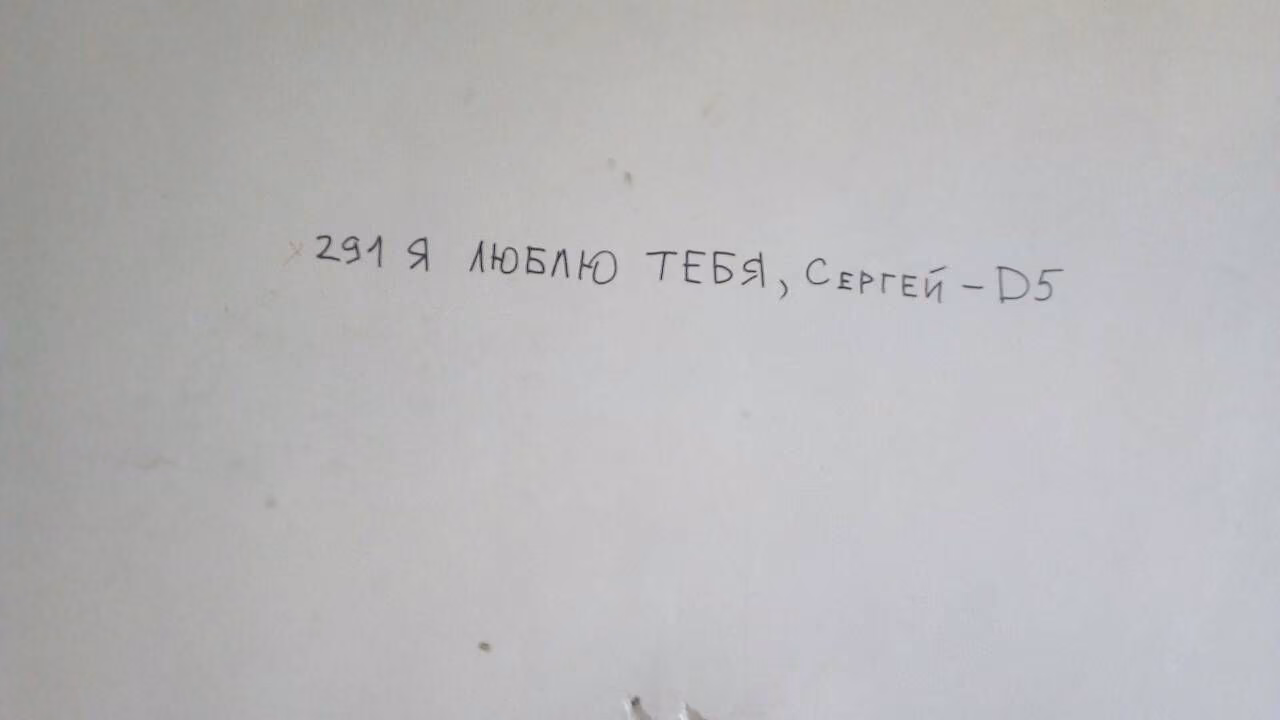 ×291 Я ЛЮБЛЮ ТЕБЯ, СЕРГЕЙ – D5